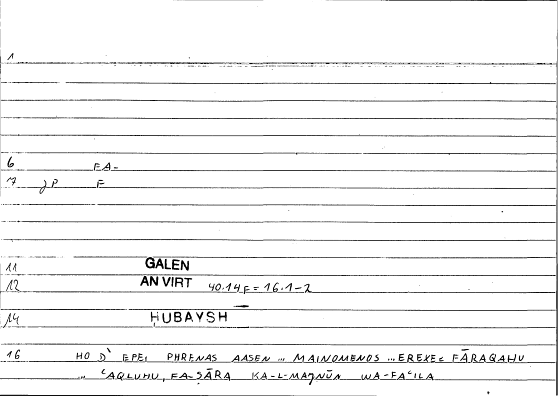 1
6 FA-
17 ȷP F
11 GALEN
12 AN VIRT 40.14F = 16.1-2
14 ḤUBAYSH
16 HO D' EPEI PHRENAS AASEN ... MAINOMENOS ... EREXEE FĀRAQAHU
... ʿAQLUHU, FA-ṢĀRA KA-L-MAǦNŪN WA-FAʿILA